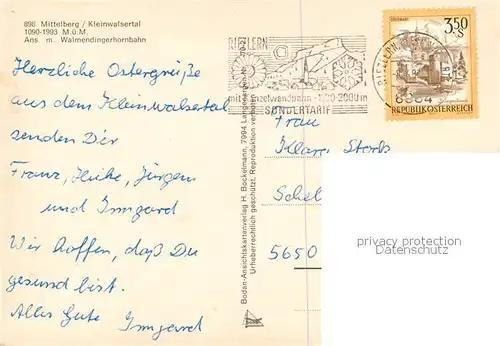 898 Mittelberg / Kleinwalsertal
1090-1993 M.ü.M.
Ans. m. Walmendingerhornbahn
Herzliche Ostergrüße
aus dem Kleinwalsertal
senden Dir
Franz, Heike, Jürgen
und Irmgard
Wir hoffen, daß Du
gesund bist.
Alles Gute Irmgard
Bodan-Ansichtskartenverlag H. Bockelmann, 7994 Langenargen
Urheberrechtlich geschützt. Reproduktion verboten
RIEZLERN
1200-2000 m
SONDERTARIF
3,50
S
REPUBLIK ÖSTERREICH
Frau
Klara Stork
Schel
5650
privacy protection
Datenschutz